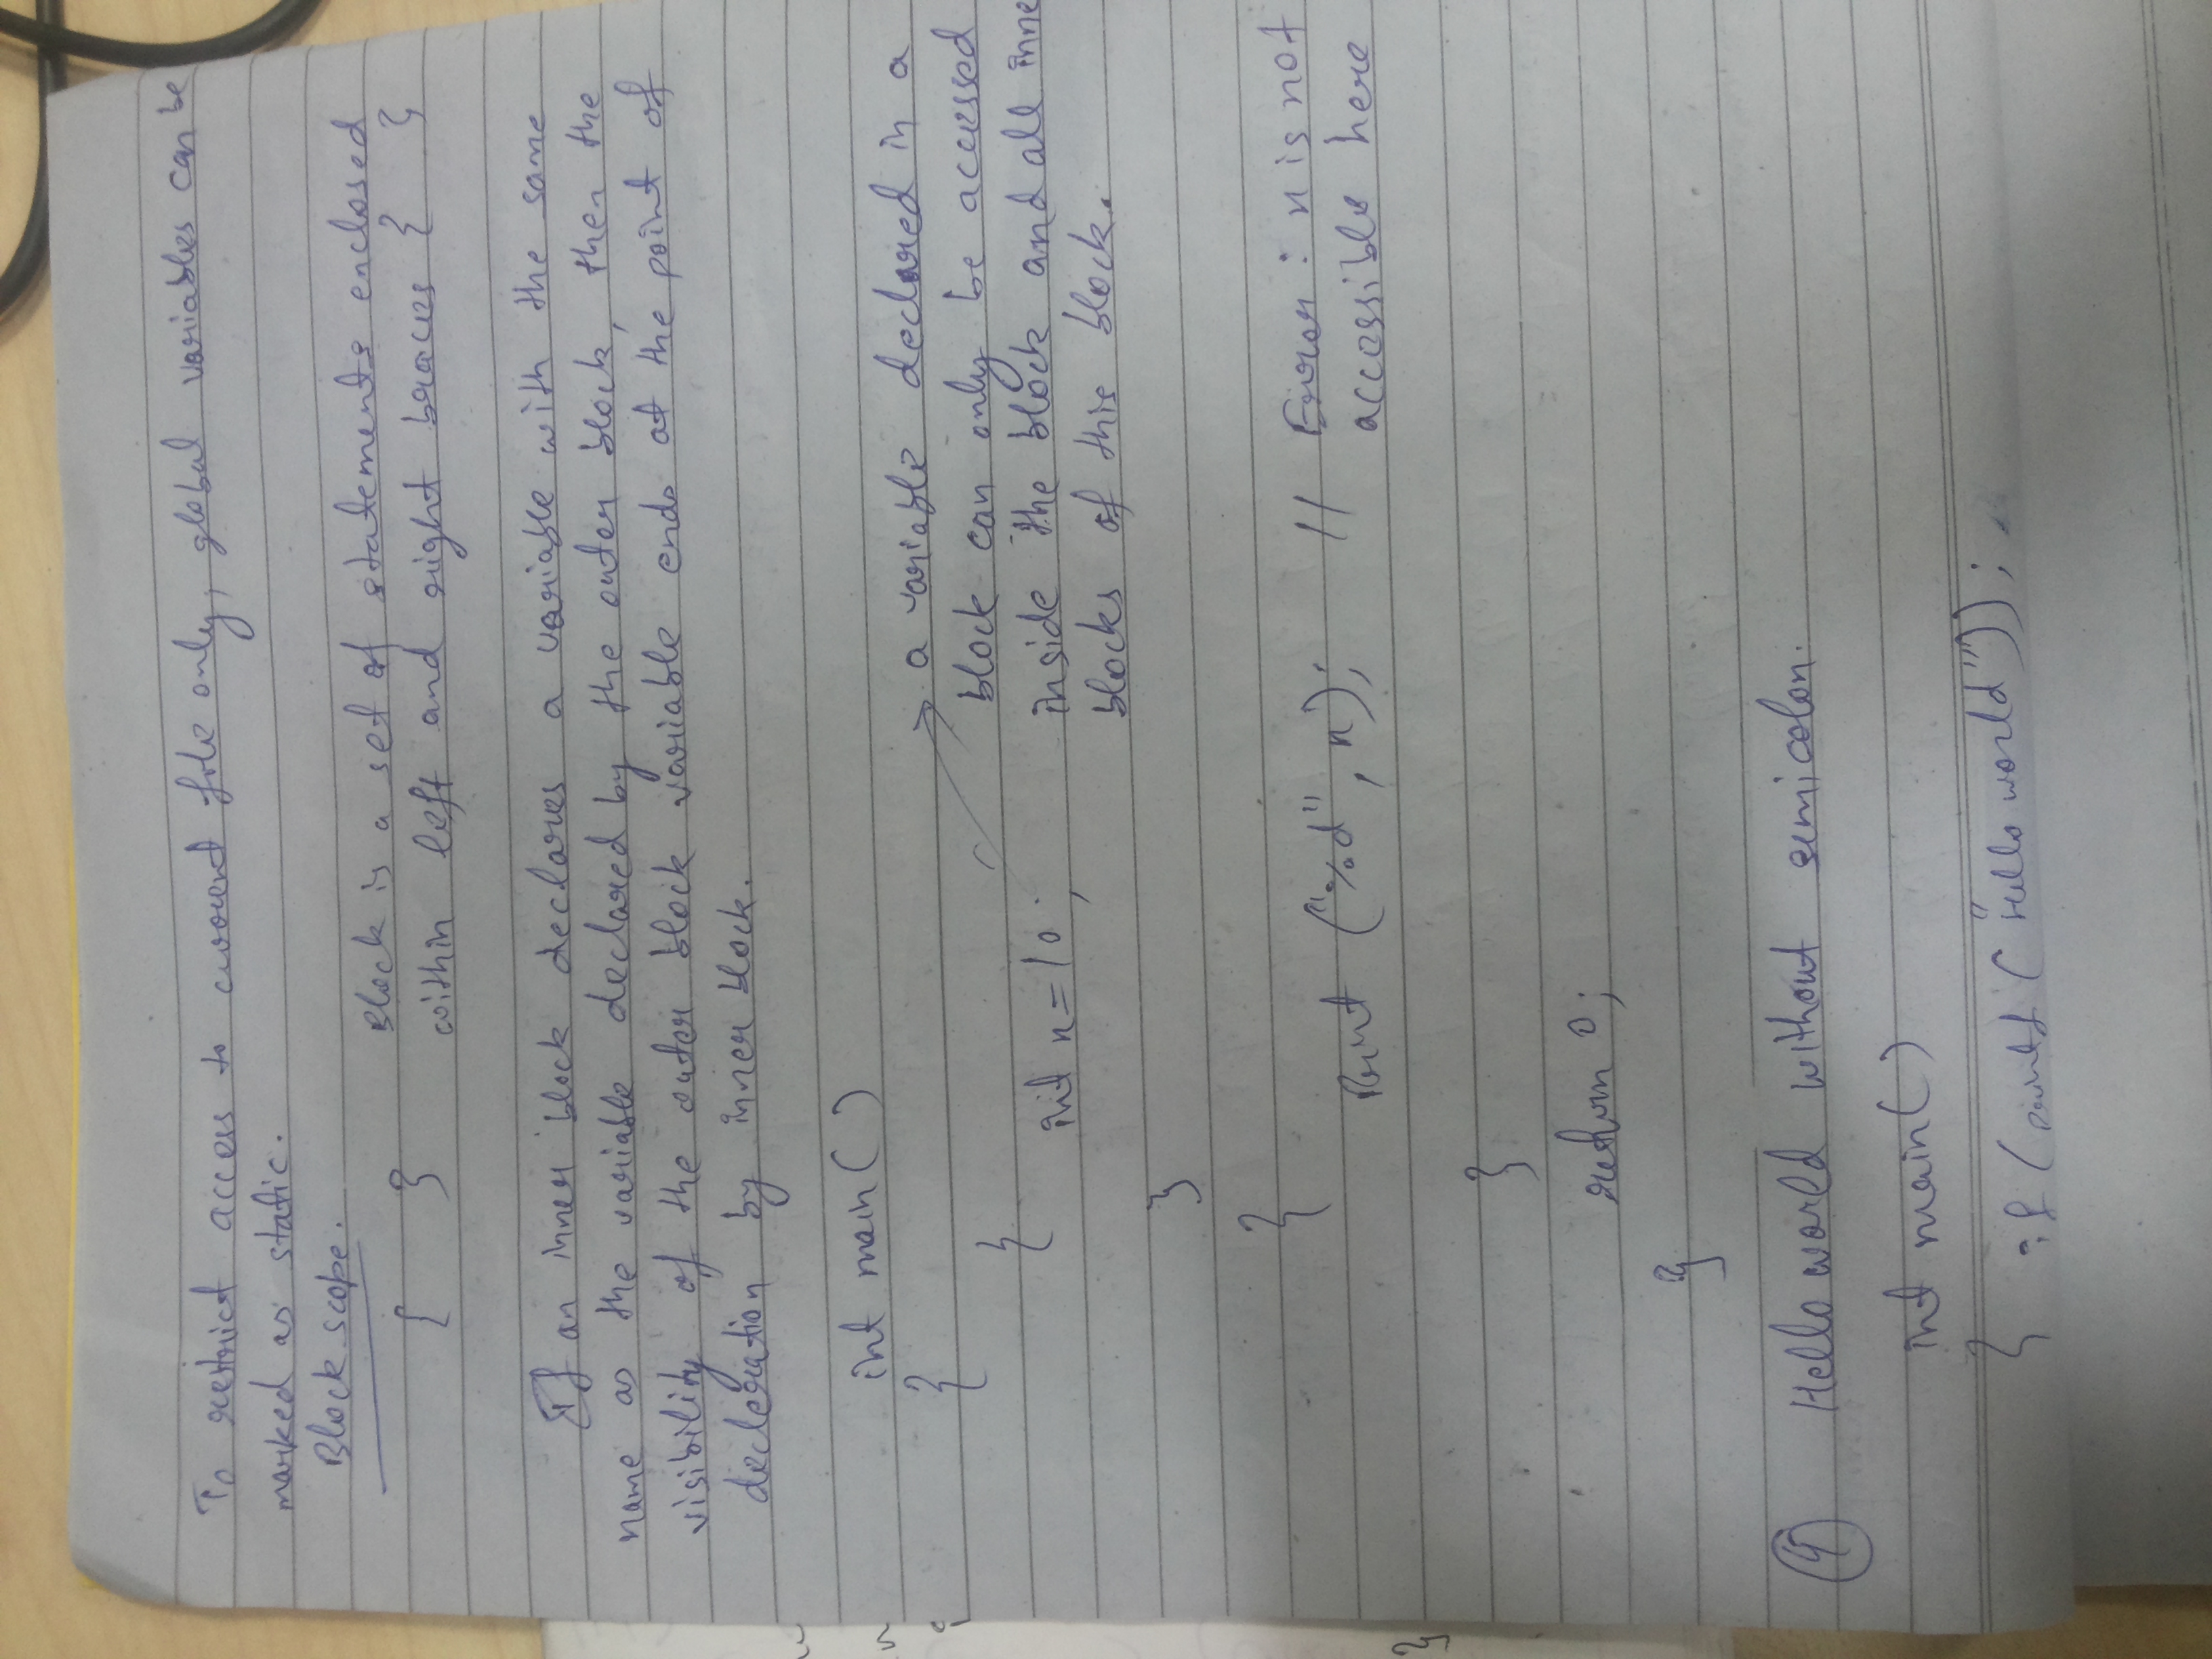 To restrict access to current file only, global variables can be
marked as static.
Block scope.
{ } Block is a set of statements enclosed
within left and right braces { }
If an inner block declares a variable with the same
name as the variable declared by the outer block, then the
visibility of the outer block variable ends at the point of
decleration by inner block.
int main()
{
a variable declared in a
block can only be accessed
{
int x=10; inside the block and all inne
blocks of this block.
}
{
Print ("%d", x); // Error: x is not
accessible here
}
return 0;
}
9 Hello world without semicolon.
int main()
{ if (printf ("Hello world"));